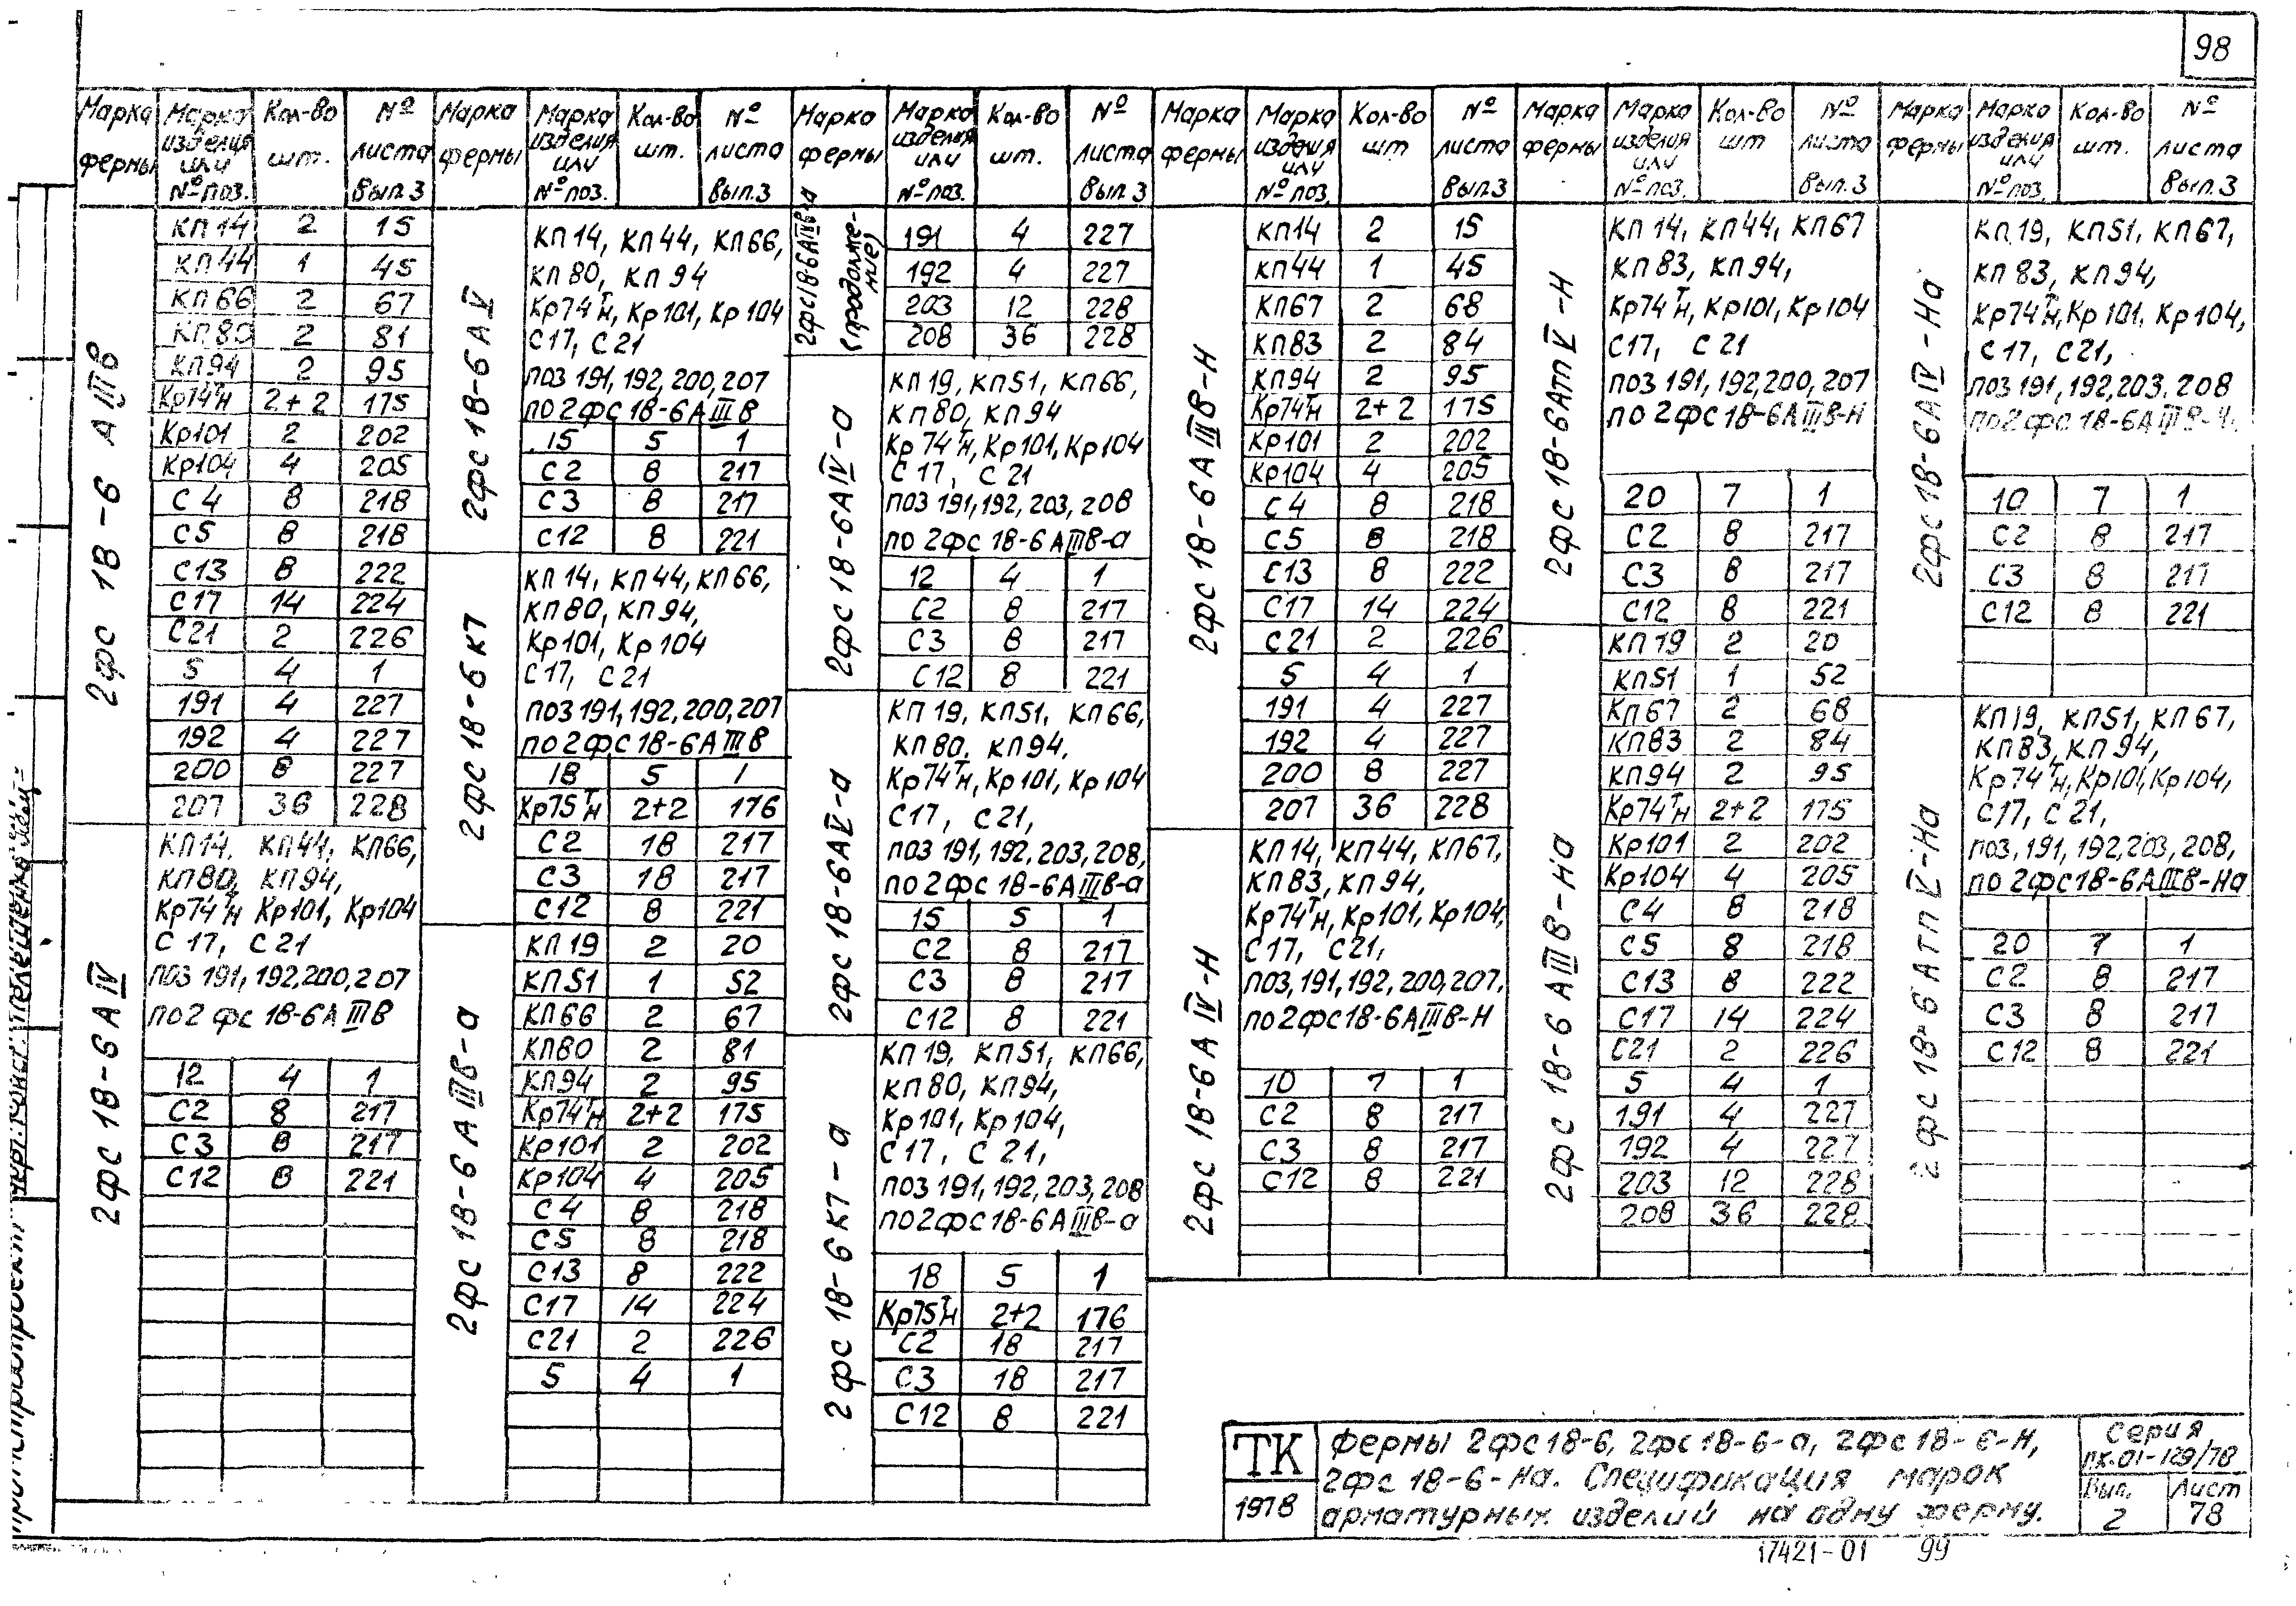 98
Марка фермы | Марка изделия или № поз. | Кол-во шт. | № листа Вып.3
2фс 18-6 АIIIв
КП14 2 15
КП44 1 45
КП66 2 67
КП80 2 81
КП94 2 95
Кр74тн 2+2 175
Кр101 2 202
Кр104 4 205
С4 8 218
С5 8 218
С13 8 222
С17 14 224
С21 2 226
5 4 1
191 4 227
192 4 227
200 8 227
207 36 228
2фс 18-6АIV
КП14, КП44, КП66,
КП80, КП94,
Кр74тн Кр101, Кр104
С17, С21
поз 191, 192, 200, 207
по 2фс 18-6АIIIв
12 4 1
С2 8 217
С3 8 217
С12 8 221
Марка фермы | Марка изделия или № поз. | Кол-во шт. | № листа Вып.3
2фс 18-6АV
КП14, КП44, КП66,
КП80, КП94
Кр74тн, Кр101, Кр104
С17, С21
поз 191, 192, 200, 207
по 2фс 18-6АIIIв
15 5 1
С2 8 217
С3 8 217
С12 8 221
2фс 18-6к7
КП14, КП44, КП66,
КП80, КП94,
Кр101, Кр104
С17, С21
поз 191, 192, 200, 207
по 2фс 18-6АIIIв
18 5 1
Кр75тн 2+2 176
С2 18 217
С3 18 217
С12 8 221
2фс 18-6АIIIв-а
КП19 2 20
КП51 1 52
КП66 2 67
КП80 2 81
КП94 2 95
Кр74тн 2+2 175
Кр101 2 202
Кр104 4 205
С4 8 218
С5 8 218
С13 8 222
С17 14 224
С21 2 226
5 4 1
Марка фермы | Марка изделия или № поз. | Кол-во шт. | № листа Вып.3
2фс18-6АIIIв-а (продолжение)
191 4 227
192 4 227
203 12 228
208 36 228
2фс 18-6АIV-а
КП19, КП51, КП66,
КП80, КП94
Кр74тн, Кр101, Кр104
С17, С21
поз 191, 192, 203, 208
по 2фс 18-6АIIIв-а
12 4 1
С2 8 217
С3 8 217
С12 8 221
2фс 18-6АV-а
КП19, КП51, КП66,
КП80, КП94,
Кр74тн, Кр101, Кр104
С17, С21,
поз 191, 192, 203, 208,
по 2фс 18-6АIIIв-а
15 5 1
С2 8 217
С3 8 217
С12 8 221
2фс 18-6к7-а
КП19, КП51, КП66,
КП80, КП94,
Кр101, Кр104,
С17, С21,
поз 191, 192, 203, 208
по 2фс 18-6АIIIв-а
18 5 1
Кр75тн 2+2 176
С2 18 217
С3 18 217
С12 8 221
Марка фермы | Марка изделия или № поз. | Кол-во шт | № листа Вып.3
2фс 18-6АIIIв-Н
КП14 2 15
КП44 1 45
КП67 2 68
КП83 2 84
КП94 2 95
Кр74тн 2+2 175
Кр101 2 202
Кр104 4 205
С4 8 218
С5 8 218
С13 8 222
С17 14 224
С21 2 226
5 4 1
191 4 227
192 4 227
200 8 227
207 36 228
2фс 18-6АIV-Н
КП14, КП44, КП67,
КП83, КП94,
Кр74тн, Кр101, Кр104,
С17, С21,
поз, 191, 192, 200, 207,
по 2фс18-6АIIIв-Н
10 7 1
С2 8 217
С3 8 217
С12 8 221
Марка фермы | Марка изделия или № поз. | Кол-во шт | № листа Вып.3
2фс 18-6АтпV-Н
КП14, КП44, КП67
КП83, КП94,
Кр74тн, Кр101, Кр104
С17, С21
поз 191, 192, 200, 207
по 2фс18-6АIIIв-Н
20 7 1
С2 8 217
С3 8 217
С12 8 221
2фс 18-6АIIIв-На
КП19 2 20
КП51 1 52
КП67 2 68
КП83 2 84
КП94 2 95
Кр74тн 2+2 175
Кр101 2 202
Кр104 4 205
С4 8 218
С5 8 218
С13 8 222
С17 14 224
С21 2 226
5 4 1
191 4 227
192 4 227
203 12 228
208 36 228
Марка фермы | Марка изделия или № поз. | Кол-во шт. | № листа Вып.3
2фс 18-6АIV-На
КП19, КП51, КП67,
КП83, КП94,
Кр74тн, Кр101, Кр104,
С17, С21,
поз 191, 192, 203, 208
по 2фс 18-6АIIIв-
10 7 1
С2 8 217
С3 8 217
С12 8 221
2фс 18-6АтпV-На
КП19, КП51, КП67,
КП83, КП94,
Кр74тн, Кр101, Кр104,
С17, С21,
поз, 191, 192, 203, 208,
по 2фс18-6АIIIв-На
20 7 1
С2 8 217
С3 8 217
С12 8 221
ТК
1978
Фермы 2фс18-6, 2фс18-6-а, 2фс18-6-Н,
2фс 18-6-На. Спецификация марок
арматурных изделий на одну ферму.
Серия
ПК-01-129/78
Вып. 2
Лист 78
17421-01 99